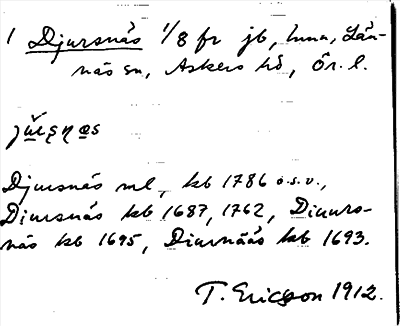 1 Djursnäs 1/8 fr jb, hmn, Län-
näs sn, Askers hd, Ör. l.
Djursnäs ml, kb 1786 o.s.v.,
Diursnäs kb 1687, 1762, Diuurs-
näs kb 1695, Diurnääs kb 1693.
T. Ericsson 1912.